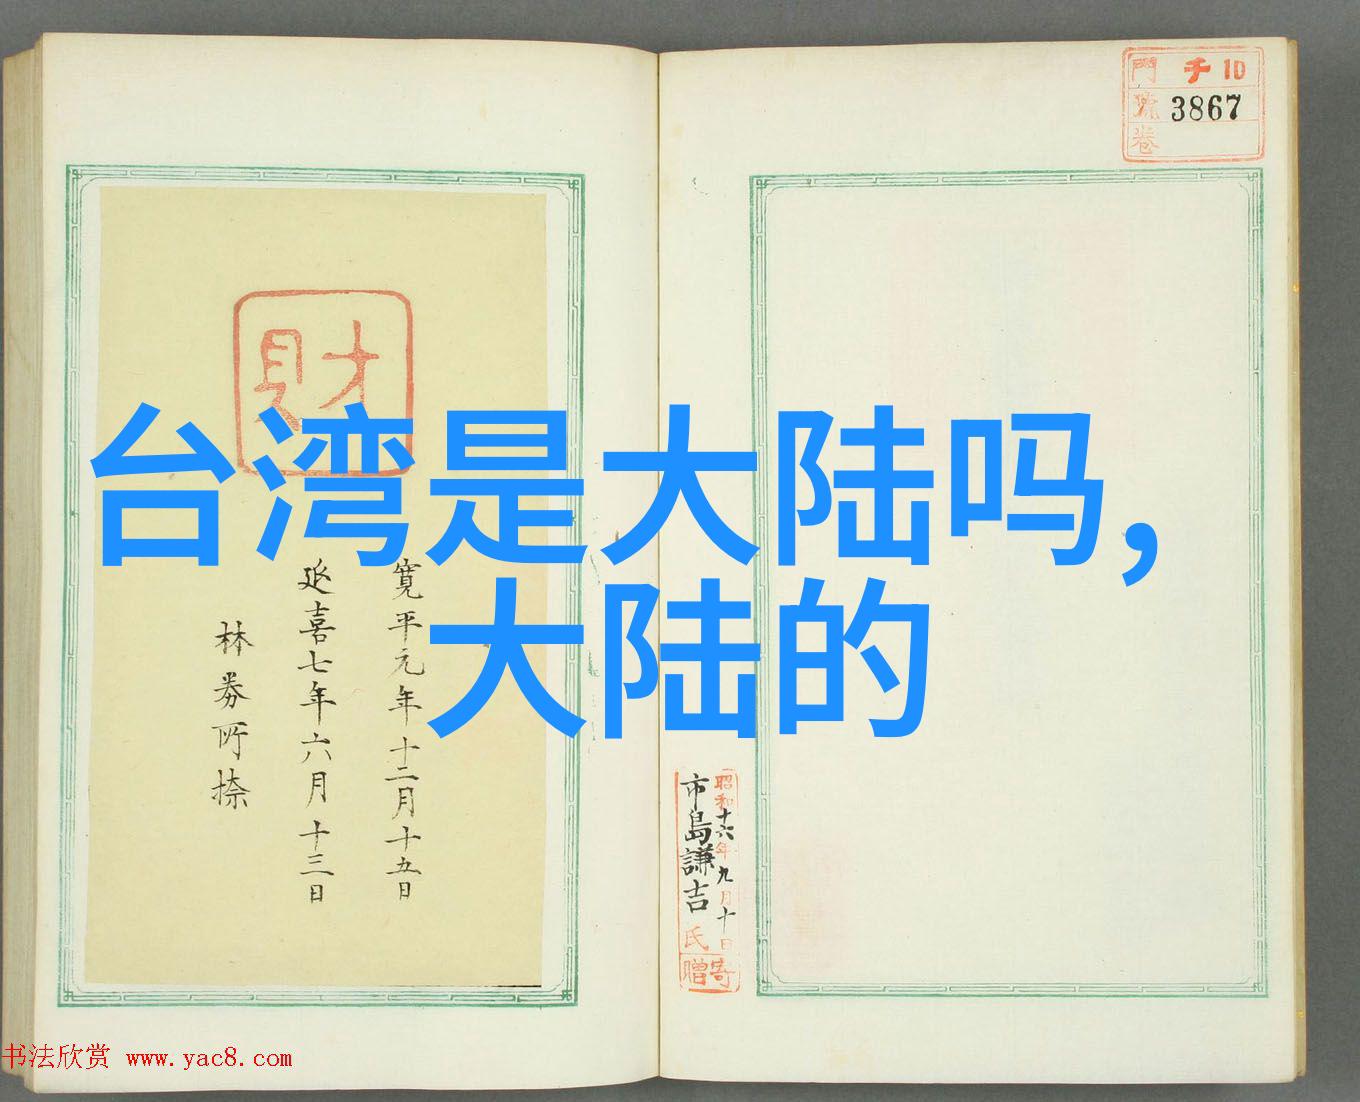 門 チ 10
號 3867
卷
財
台湾是大陆吗，
大陆的
寛平元年十二月十五日
延喜七年六月十三日
昭和十六年九月十日
市島謙吉氏
寄贈
书法欣赏 www.yac8.com